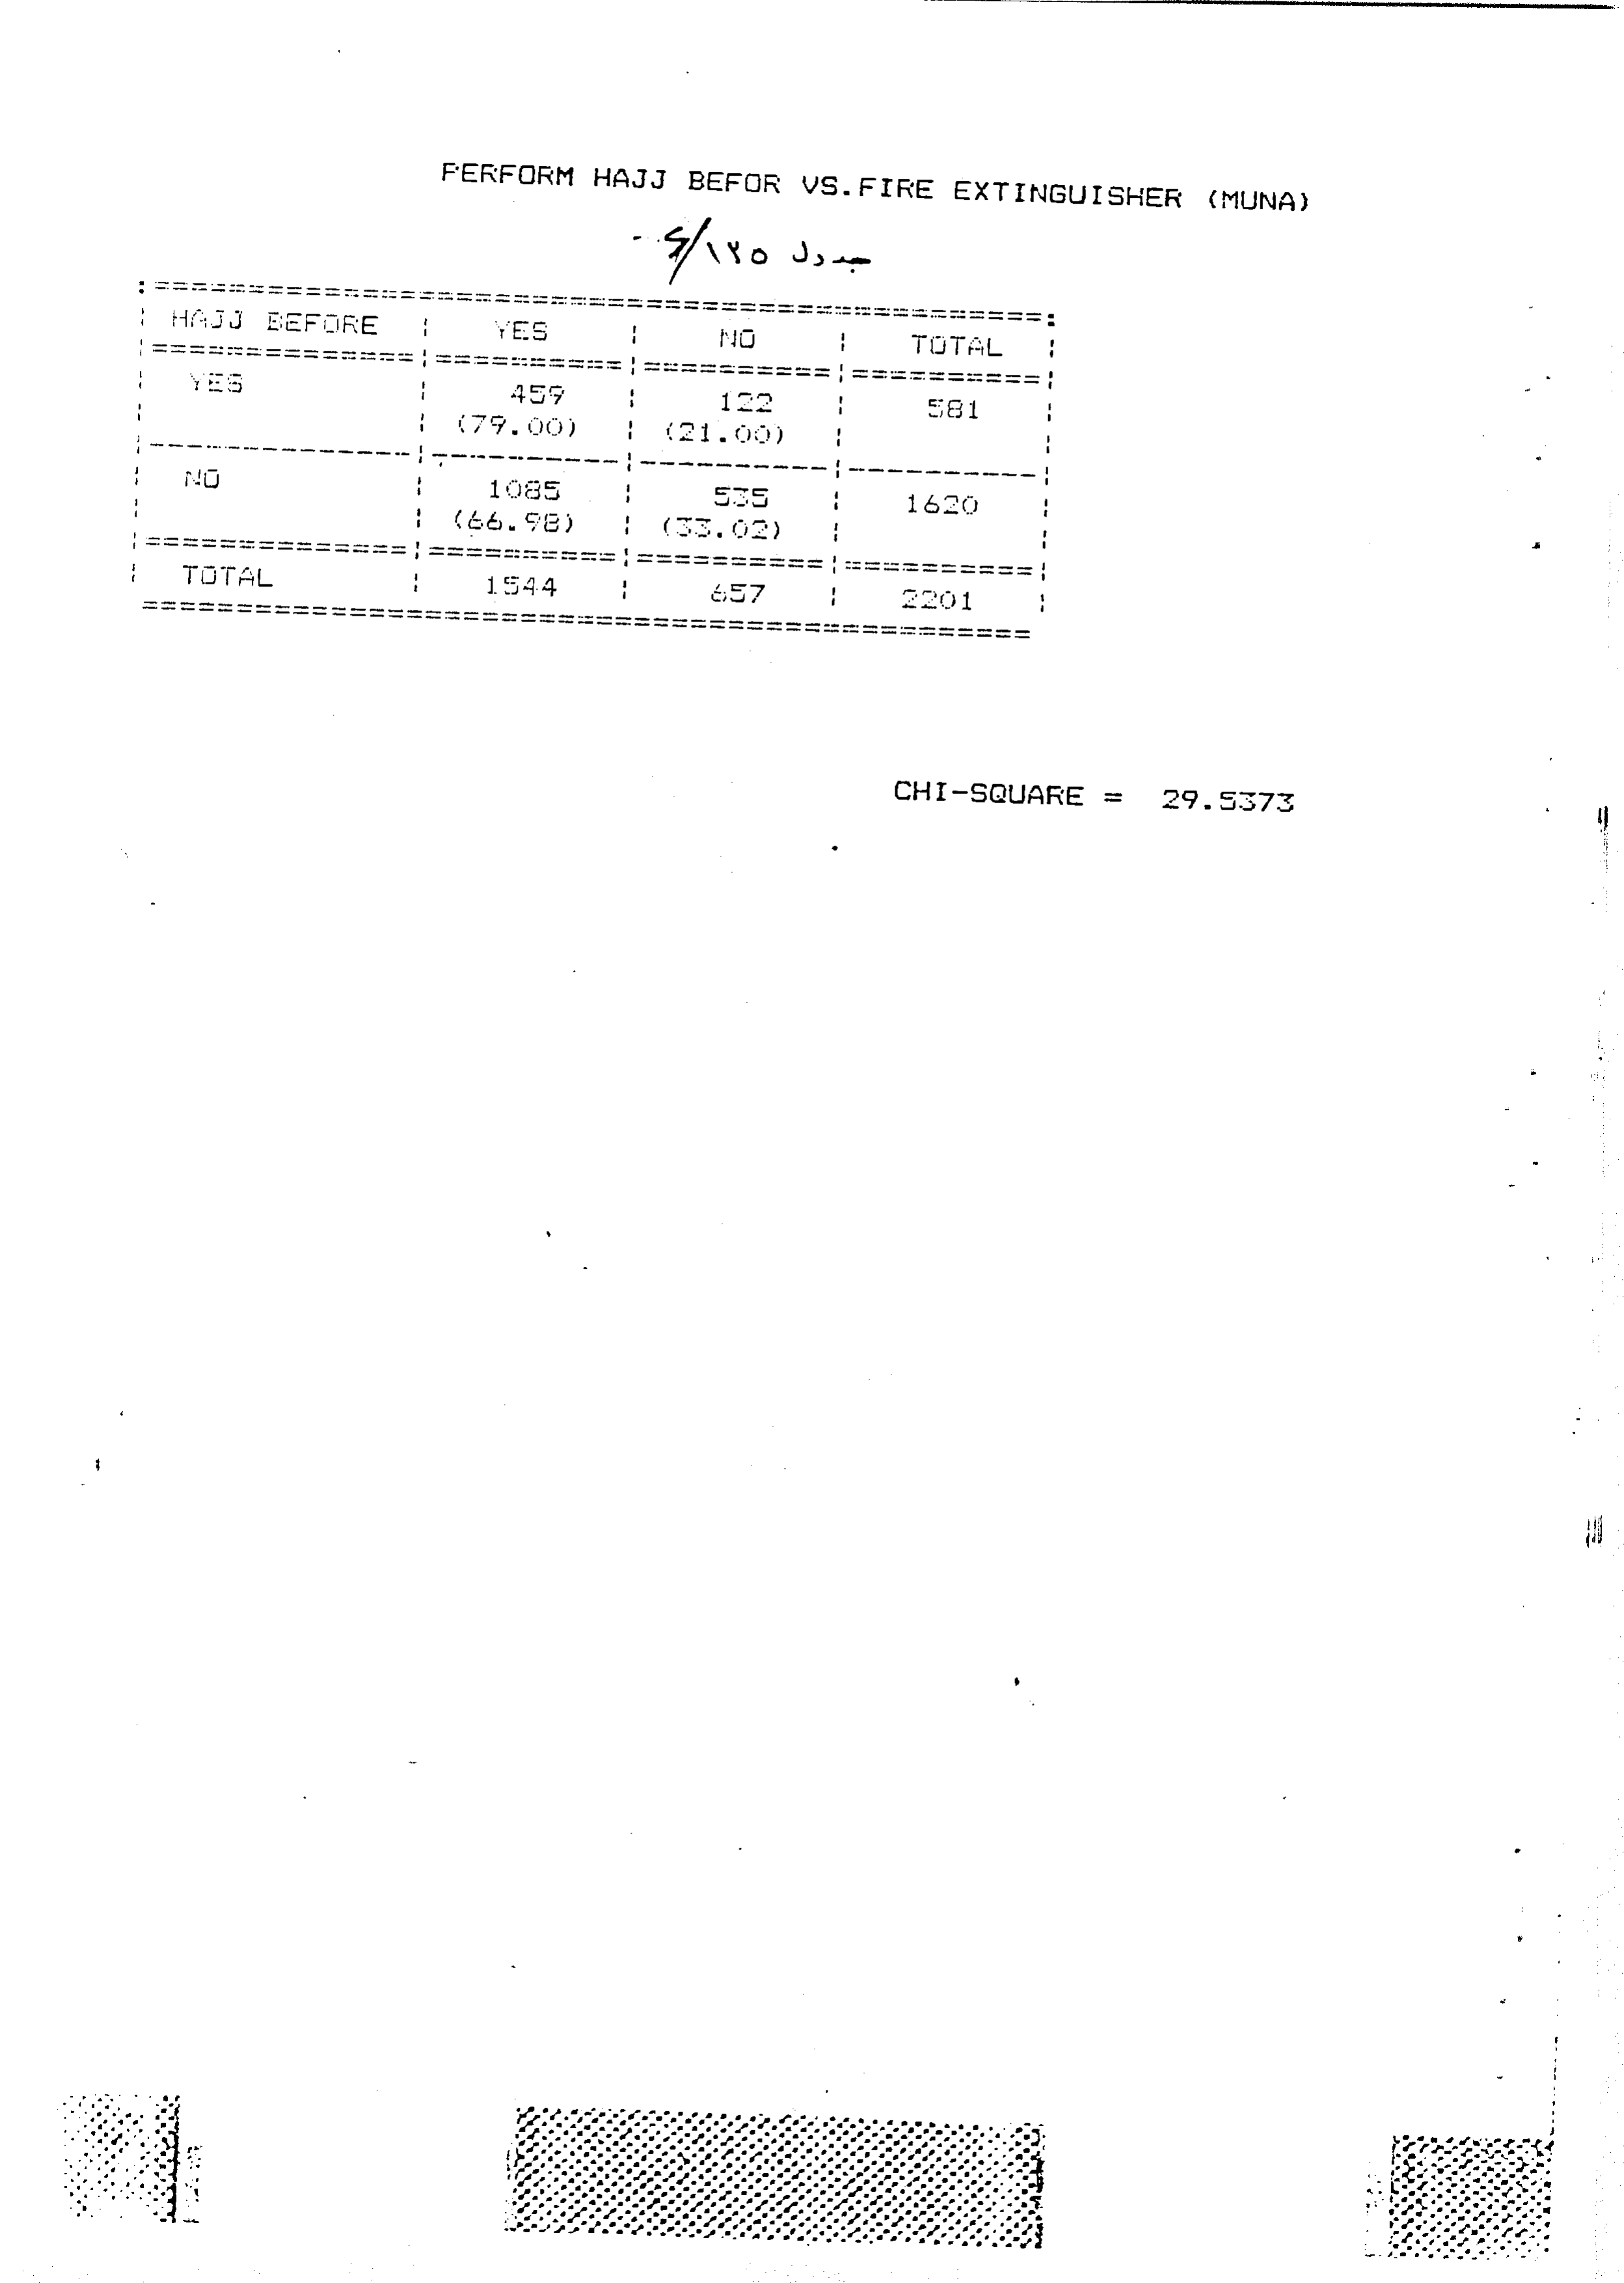 PERFORM HAJJ BEFOR VS.FIRE EXTINGUISHER (MUNA)
جدول ١٢٥/٤ -
HAJJ BEFORE | YES | NO | TOTAL
YES | 459 | 122 | 581
(79.00) | (21.00)
NO | 1085 | 535 | 1620
(66.98) | (33.02)
TOTAL | 1544 | 657 | 2201
CHI-SQUARE = 29.5373